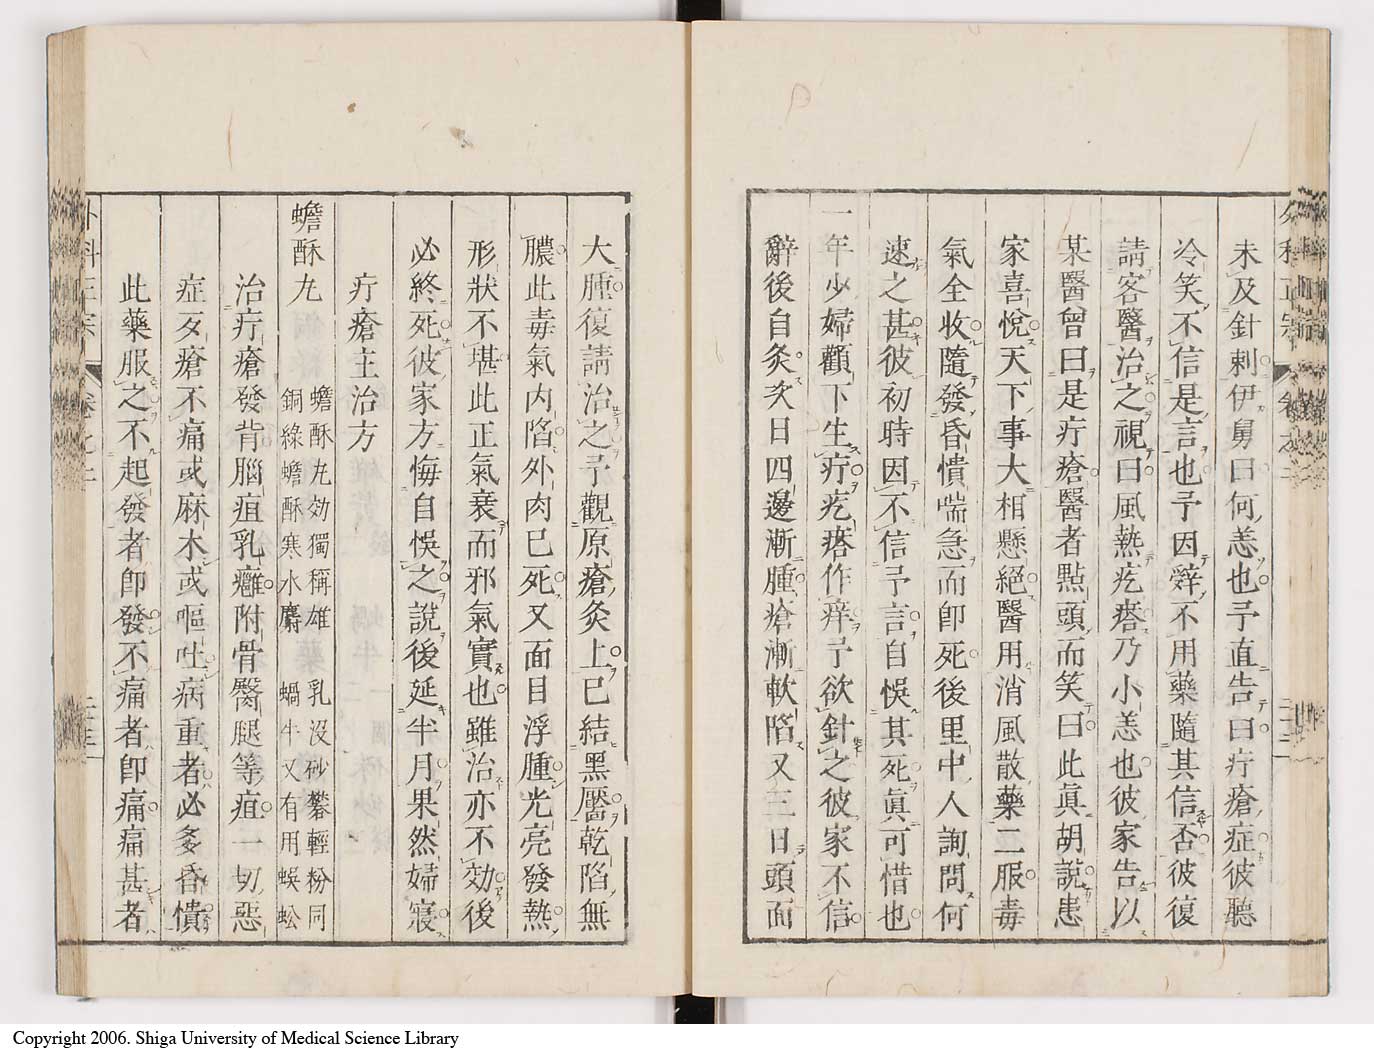 未及針刺伊舅曰何恙也予直告曰疔瘡症彼聽
冷笑不信是言也予因辤不用藥隨其信否彼復
請客醫治之視曰風熱疙瘩乃小恙也彼家告以
某醫曾曰是疔瘡醫者㸃頭而笑曰此眞胡說患
家喜悅天下事大相懸絕醫用消風散藥二服毒
氣全收隨發昏憒喘急而卽死後里中人詢問何
速之甚彼初時因不信予言自悞其死眞可惜也
一年少婦顴下生疔疙瘩作痒予欲針之彼家不信
辭後自灸次日四邊漸腫瘡漸軟陷又三日頭面
大腫復請治之予觀原瘡灸上已結黑靨乾陷無
膿此毒氣内陷外肉已死又面目浮腫光亮發熱
形狀不堪此正氣衰而邪氣實也雖治亦不効後
必終死彼家方悔自悞之說後延半月果然婦寢
疔瘡主治方
蟾酥丸
蟾酥丸効獨稱雄 乳沒砂礬輕粉同
銅綠蟾酥寒水麝 蝸牛又有用蜈蚣
治疔瘡發背腦疽乳癰附骨臀腿等疽一切惡
症歹瘡不痛或麻木或嘔吐病重者必多昏憒
此藥服之不起發者卽發不痛者卽痛痛甚者
外科正宗 卷之二
Copyright 2006. Shiga University of Medical Science Library